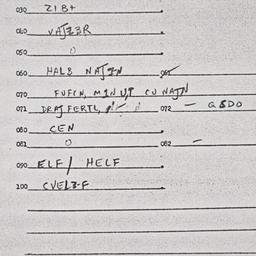 030 ZIB+
040 VAJZ3R
050 0
060 HAL8 NAJZN 061
070 FUFCN, MIN UJT CU NAJN
071 DRAJ FERTL, 072 — Q8DO
080 CEN
081 0 082 —
090 ELF / HELF
100 CVELZ-F